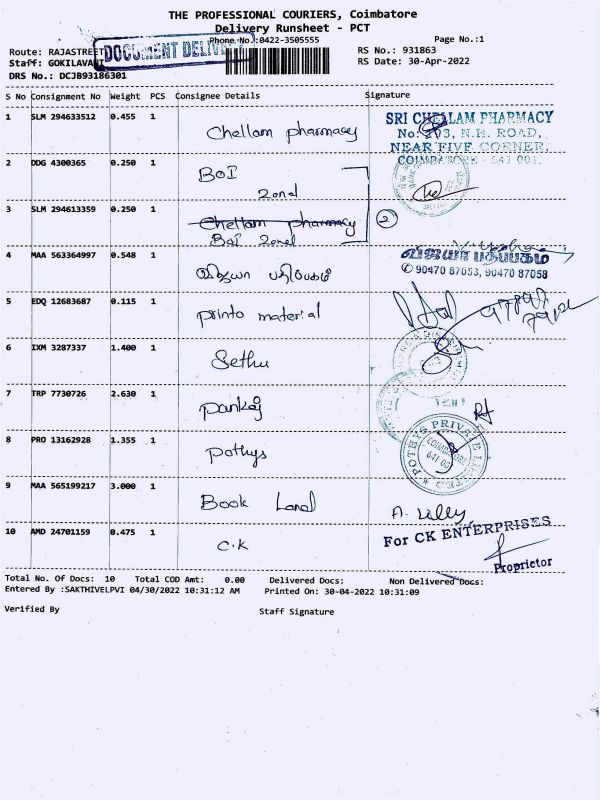 THE PROFESSIONAL COURIERS, Coimbatore
Delivery Runsheet - PCT
Phone No.:0422-3505555 Page No.:1
Route: RAJASTREET RS No.: 931863
DOCUMENT DELIVE
Staff: GOKILAVANI RS Date: 30-Apr-2022
DRS No.: DCJB93186301
S No Consignment No Weight PCS Consignee Details Signature
1 SLM 294633512 0.455 1 Chellam pharmacy
SRI CHELLAM PHARMACY
No: 203, N.H. ROAD,
NEAR FIVE CORNER,
COIMBATORE - 641 001.
2 DDG 4300365 0.250 1 BOI
Zonal
3 SLM 294613359 0.250 1 Chellam pharmacy 2
BOI Zonal
4 MAA 563364997 0.548 1 விஜயா பதிப்பகம்
விஜயா பதிப்பகம்
✆ 90470 87053, 90470 87058
5 EDQ 12683687 0.115 1 printo material
6 IXM 3287337 1.400 1 Sethu
7 TRP 7730726 2.630 1 pankaj
8 PRO 13162928 1.355 1 pothys
POTHYS PRIVATE LIMITED
COIMBATORE
641 001
9 MAA 565199217 3.000 1 Book Land A. Lilly
10 AMD 24701159 0.475 1 C.K
For CK ENTERPRISES
Proprietor
Total No. Of Docs: 10 Total COD Amt: 0.00 Delivered Docs: Non Delivered Docs:
Entered By :SAKTHIVELPVI 04/30/2022 10:31:12 AM Printed On: 30-04-2022 10:31:09
Verified By Staff Signature